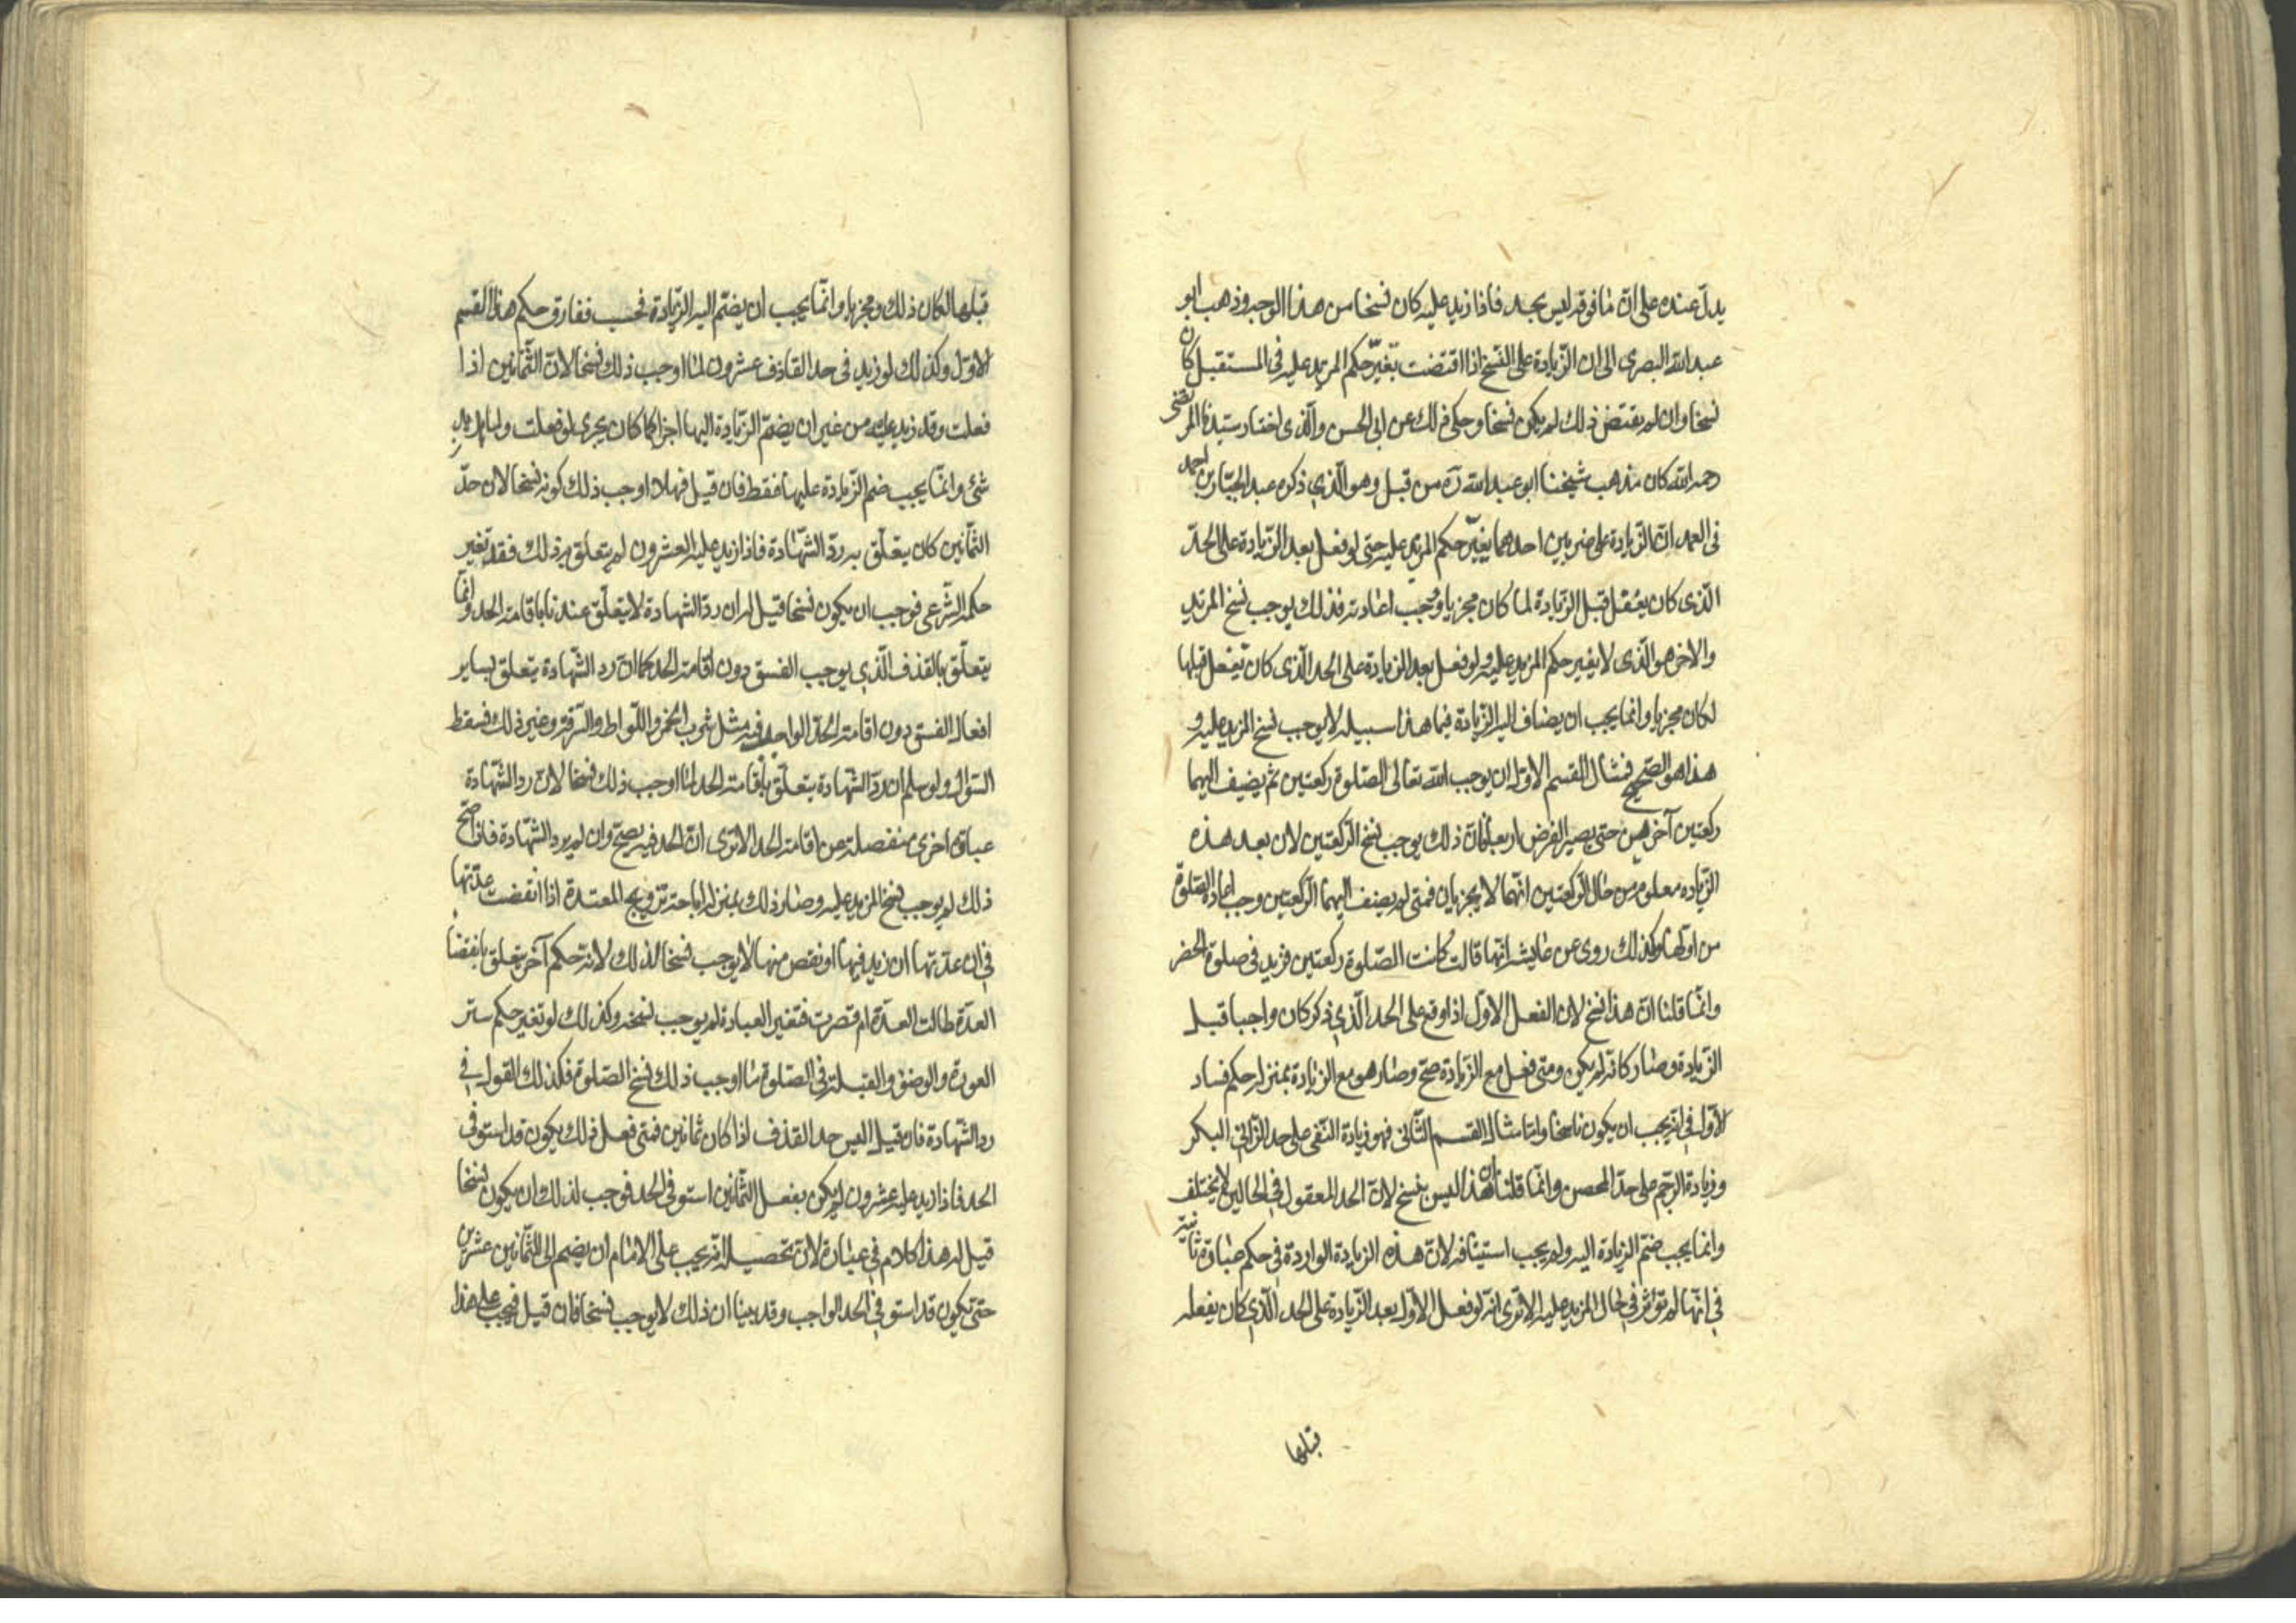 يدلّ عنده على انّ ما فوقه ليس بحد فاذا زيد عليه كان نسخا من هذا الوجه وذهب ابو
عبد الله البصرى الى ان الزّيادة على النّسخ اذا اقتضت تغيّر حكم المزيد عليه فى المستقبل كان
نسخا وان لم يقتض ذلك لم يكن نسخا وحكى ذلك عن ابى الحسن والّذى اختاره سيّدنا المرتضى
رحمه الله كان مذهب شيخنا ابو عبد الله ره من قبل وهو الّذي ذكره عبد الجبّار بن احمد
فى العمد انّ الزّيادة على ضربين احدهما يغيّر حكم المزيد عليه حتى لو فعل بعد الزّيادة على الحدّ
الّذى كان يفعل قبل الزّيادة لما كان مجزيا ووجب اعادته فذلك يوجب نسخ المزيد
والاخر هو الّذى لا يغير حكم المزيد عليه ولو فعل بعد الزيادة على الحد الّذى كان يفعل قبلها
لكان مجزيا وانما يجب ان يضاف اليه الزّيادة فيما هذا سبيله لا يوجب نسخ المزيد عليه و
هذا هو الصّحيح فمثال القسم الاوّل ان يوجب الله تعالى الصّلوة ركعتين ثم يضيف اليهما
ركعتين آخرهين حتى يصير الفرض اربعا فانّ ذلك يوجب نسخ الرّكعتين لان بعد هذه
الزّياده معلوم من حال الرّكعتين انّهما لا يجزيان فمتى لم يضف اليهما الرّكعتين وجب اعادة الصّلوة
من اوّلها وكذلك روى عن عايشه انّها قالت كانت الصّلوة ركعتين فزيد فى صلوة الحضر
وانّما قلنا انّ هذا نسخ لان الفعل الاوّل اذا وقع على الحد الّذي ذكر كان واجبا قبل
الزّيادة وصار كانّه لم يكن ومتى فعل مع الزّيادة صحّ وصار هو مع الزيادة بمنزله حكم فساد
الاوّل فى انّه يجب ان يكون ناسخا وامّا مثال القسم الثّانى فهو زيادة النّفى على حد الزّانى البكر
وزيادة الرّجم على حدّ المحصن وانّما قلنا انّ هذا ليس بنسخ لانّ الحد المعقول فى الحالين لا يختلف
وانما يجب ضمّ الزيادة اليه ولم يجب استينافه لانّ هذه الزيادة الواردة فى حكم عبادة ثانية
فى انّها لم تؤثر فى حال المزيد عليه الا ترى انّه لو فعل الاوّل بعد الزّيادة على الحد الّذى كان يفعله
قبلها
قبلها لكان ذلك مجزيا وانّما يجب ان يضمّ اليه الزّيادة فحسب ففارق حكم هذا القسم
الاوّل وكذلك لو زيد فى حد القاذف عشرون لما اوجب ذلك نسخا لانّ الثّمانين اذا
فعلت وقد زيد عليه من غير ان يضمّ الزيادة اليها اجزا كما كان يجرى لو فعلت ولما يزيد
شئ وانّما يجب ضم الزّيادة عليها فقط فان قيل فهلا اوجب ذلك كونه نسخا لان حدّ
الثّمانين كان يتعلّق به ردّ الشّهادة فاذا زيد عليه العشرون لم يتعلق به ذلك فقد تغير
حكمه الشّرعى فوجب ان يكون نسخا قيل له ان ردّ الشهادة لا يتعلّق عندنا باقامة الحد وانّما
يتعلّق بالقذف الّذي يوجب الفسق دون اقامة الحد كما انّ رد الشّهادة يتعلق بساير
افعال الفسق دون اقامة الحدّ الواجد فيه مثل شرب الخمر واللّواط والسّرقة وغير ذلك فسقط
السّؤال ولو سلم ان ردّ الشّهادة يتعلّق باقامة الحد لما اوجب ذلك نسخا لانّ رد الشّهادة
عبادة اخرى منفصلة من اقامة الحد الا ترى انّ الحد فيه يصحّ وان لم يرد الشّهادة فاذا صحّ
ذلك لم يوجب نسخ المزيد عليه وصار ذلك بمنزله اباحة تزويج المعتدة اذا انقضت عدّتها
فى ان عدّتها ان زيد فيها او نقص منها لا يوجب نسخا لذلك ولانه حكم آخر يتعلق بانقضا
العدّة طالت العدّة ام قصرت فتغير العبادة لم يوجب نسخه وكذلك لو تغير حكم ستر
العورة والوضؤ والقبلة فى الصّلوة ما اوجب ذلك نسخ الصّلوة فكذلك القول فى
رد الشّهادة فان قيل اليس حد القذف اذا كان ثمانين فمتى فعل ذلك يكون قد استوفى
الحد فاذا زيد عليه عشرون لم يكن بفعل الثّمانين استوفى الحد فوجب لذلك ان يكون نسخا
قيل له هذا كلام فى عبارة لانّ تحصيله انّه يجب على الامام ان يضم الى الثّمانين عشرين
حتى يكون قد استوفى الحد الواجب وقد بينا ان ذلك لا يوجب نسخا فان قيل فيجب على هذا